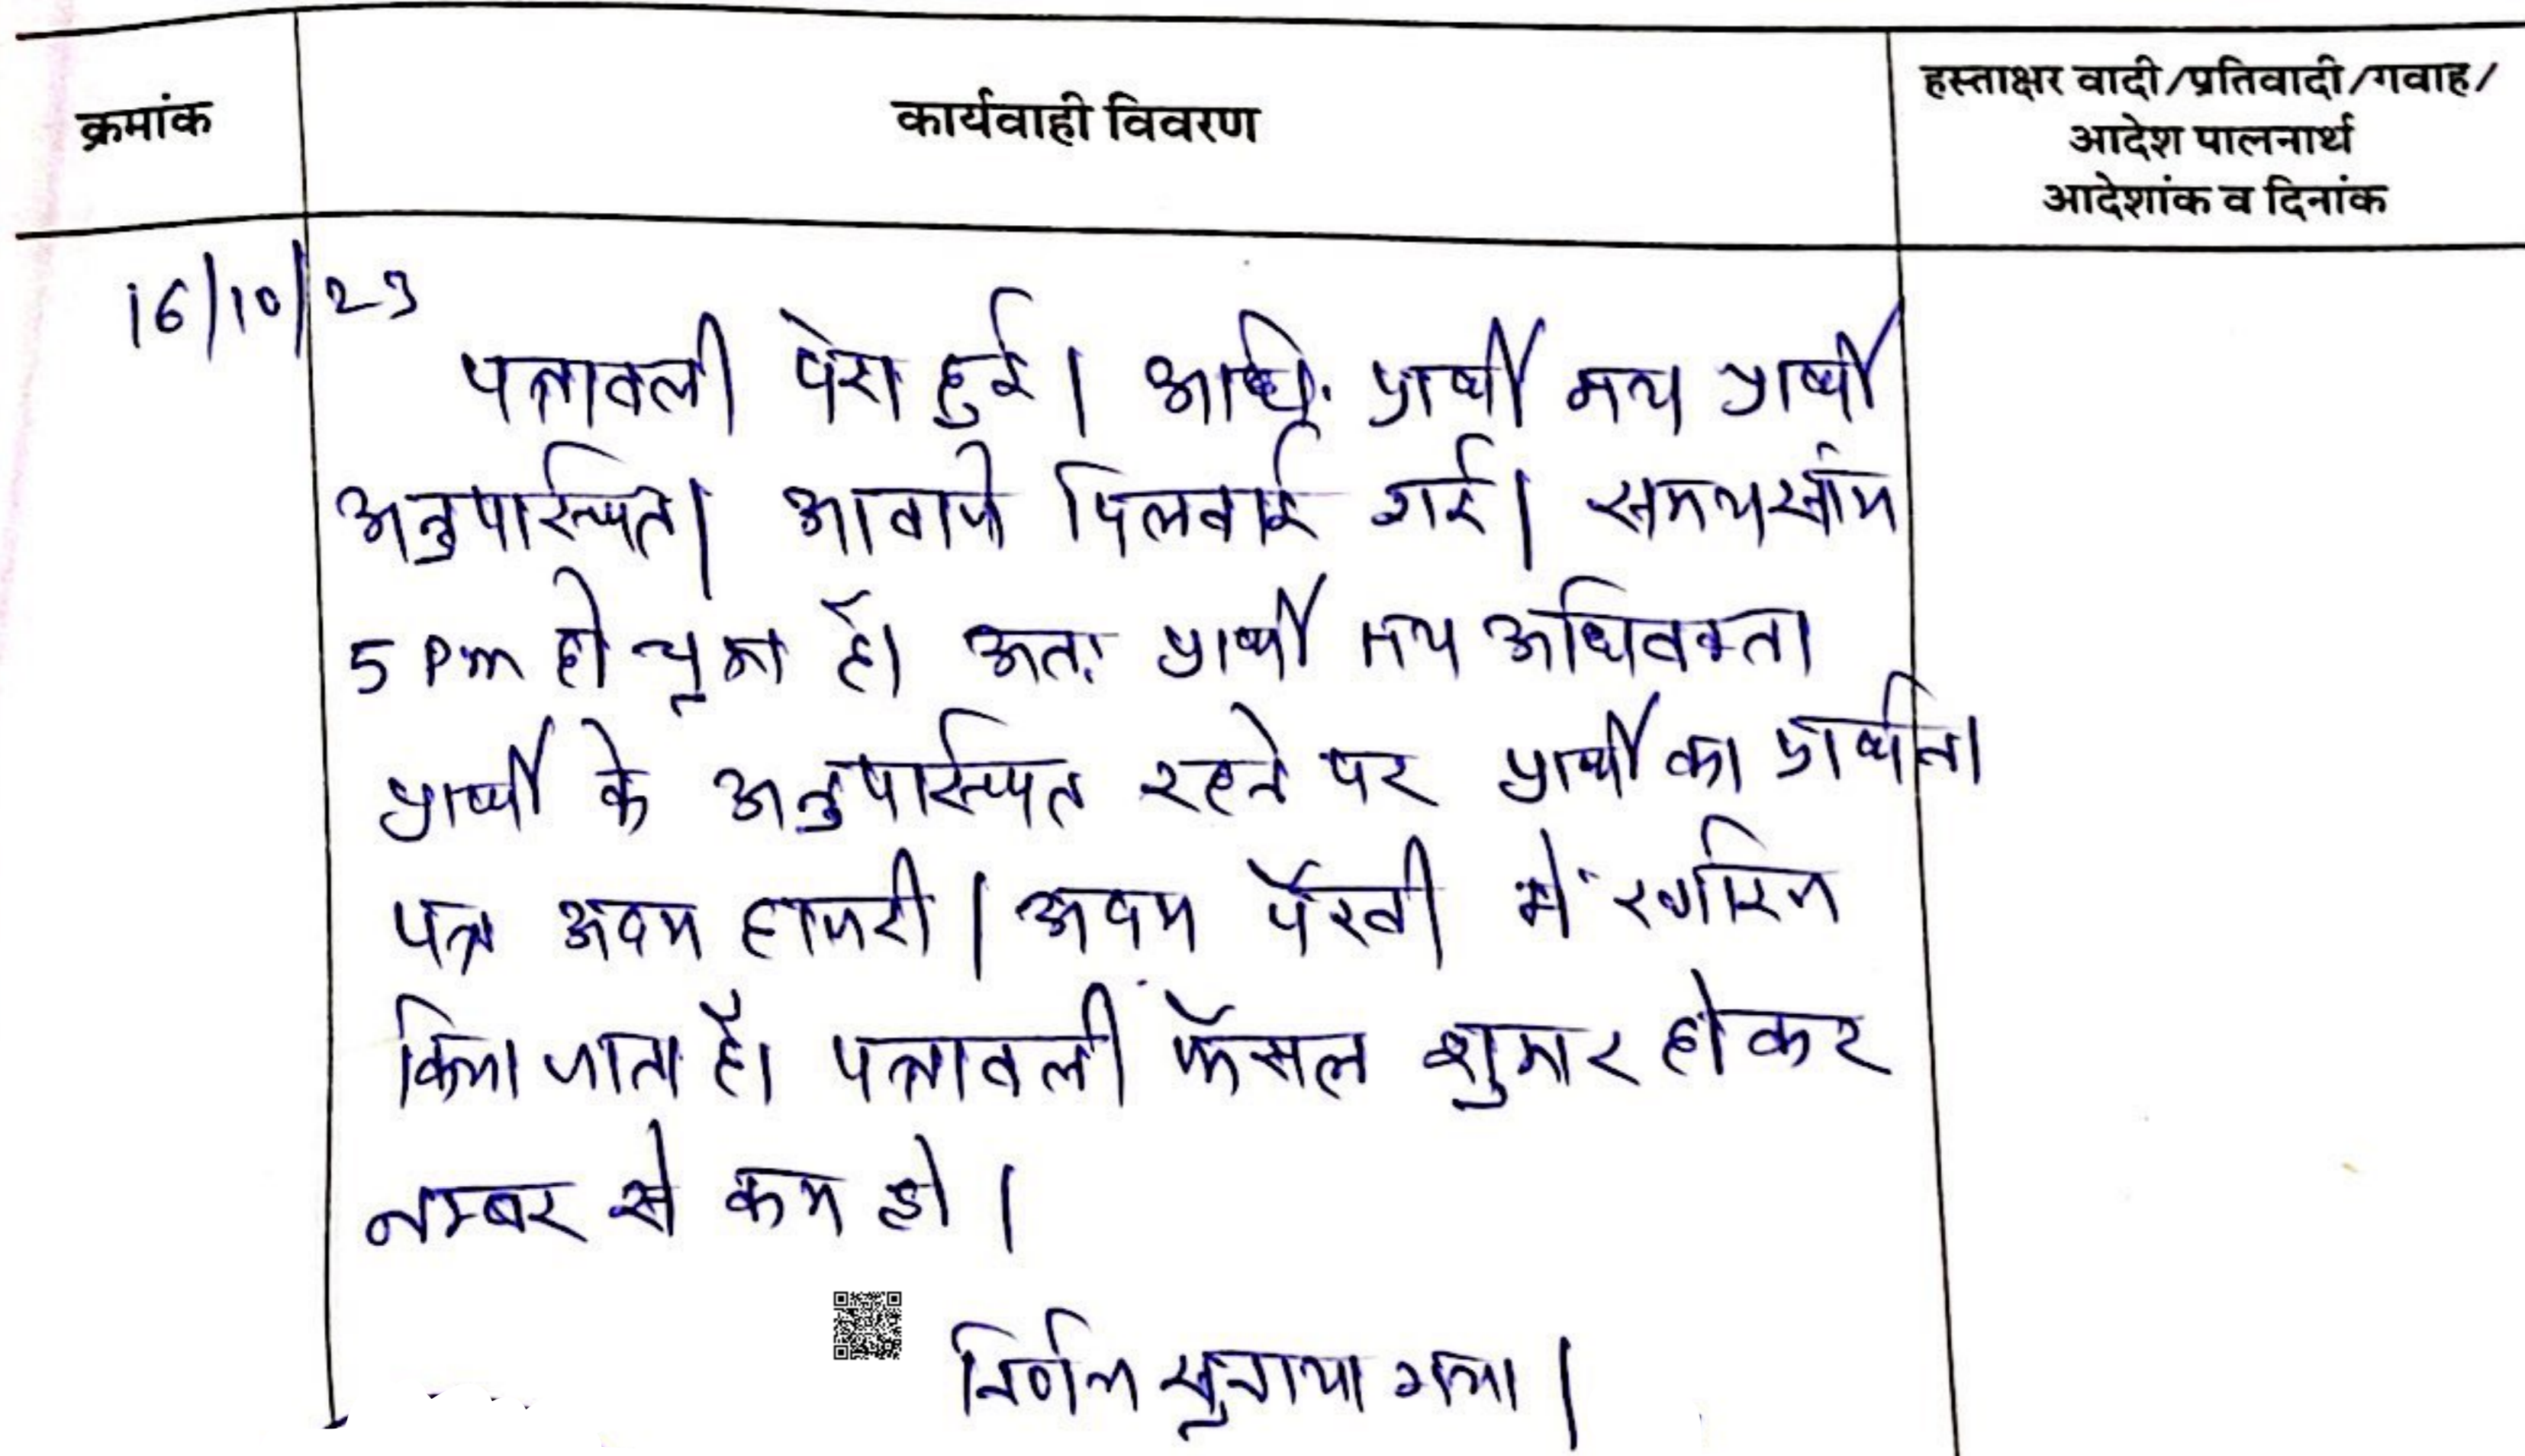 क्रमांक
कार्यवाही विवरण
हस्ताक्षर वादी/प्रतिवादी/गवाह/
आदेश पालनार्थ
आदेशांक व दिनांक
16/10/23
पत्रावली पेश हुई। अधि. प्रार्थी मय प्रार्थी
अनुपस्थित। आवाजे दिलवाई गई। समय सांय
5 Pm हो चूका है। अतः प्रार्थी मय अधिवक्ता
प्रार्थी के अनुपस्थित रहने पर प्रार्थी का प्रार्थना
पत्र अदम हाजरी। अदम पैरवी में खारिज
किया जाता है। पत्रावली फैसल शुमार होकर
नम्बर से कम हो।
निर्णय सुनाया गया।